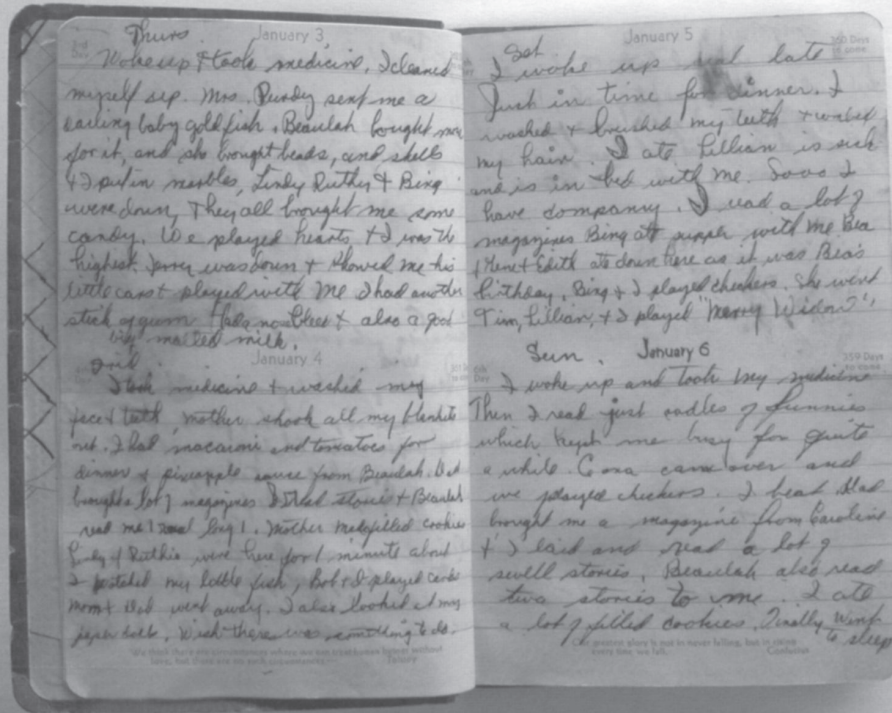 Thurs. January 3
3rd Day
Woke up & took medicine. I cleaned
myself up. Mrs. Purdey sent me a
darling baby gold fish. Beaulah bought me
for it, and she brought beads, and shells
& I put in marbles, Lindy Ruthy & Bing
were down, They all brought me some
candy. We played hearts & I was the
highest. Jerry was down & showed me his
little cars & played with me I had another
stick of gum & also a good
big malted milk.
January 4
I took medicine & washed my
face & teeth, mother shook all my blankets
out. I had macaroni and tomatoes for
dinner & pineapple sauce from Beaulah. Dad
brought a lot of magazines I read stories & Beaulah
read me 1 long 1. Mother made filled cookies
Lindy & Ruthie were here for 1 minute about
I watched my little fish, Bob & I played cards
Mom & Dad went away. I also looked at my
paper dolls. Wish there was something to do.
We think there are circumstances where we can treat human beings without
love, but there are no such circumstances.
Sat January 5
360 Days to come
I woke up late
Just in time for dinner. I
washed & brushed my teeth &
my hair. I ate Lillian is sick
and is in bed with me. Sooo I
have company. I read a lot of
magazines Bing ate supper with me Bea
& Gene & Edith ate down here as it was Bea's
birthday, Bing & I played checkers. She went
Tim, Lillian, & I played "Merry Widow",
Sun. January 6
6th Day
359 Days to come
I woke up and took my medicine
Then I read just oodles of funnies
which kept me busy for quite
a while. Cora came over and
we played checkers. I beat Dad
brought me a magazine from Caroline
& I laid and read a lot of
swell stories, Beaulah also read
two stories to me. I ate
a lot of filled cookies. Finally went
to sleep
Our greatest glory is not in never falling, but in rising
every time we fall. Confucius